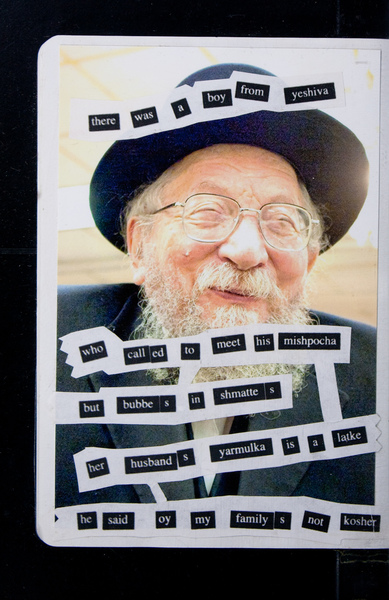 there was a boy from yeshiva
who called to meet his mishpocha
but bubbe s in shmatte s
her husband s yarmulka is a latke
he said oy my family s not kosher